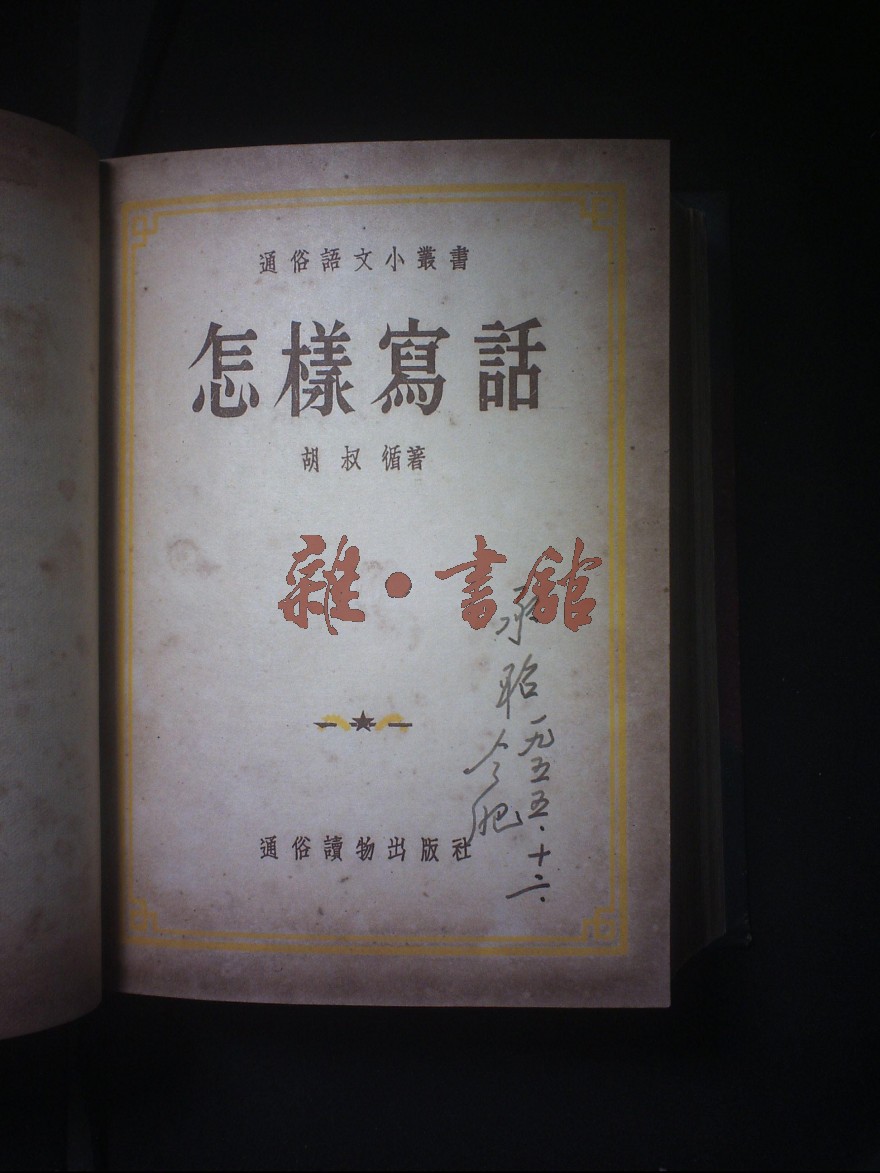 通俗語文小叢書
怎樣寫話
胡叔循著
雜·書舘
一九五五·十二·
合肥
通俗讀物出版社